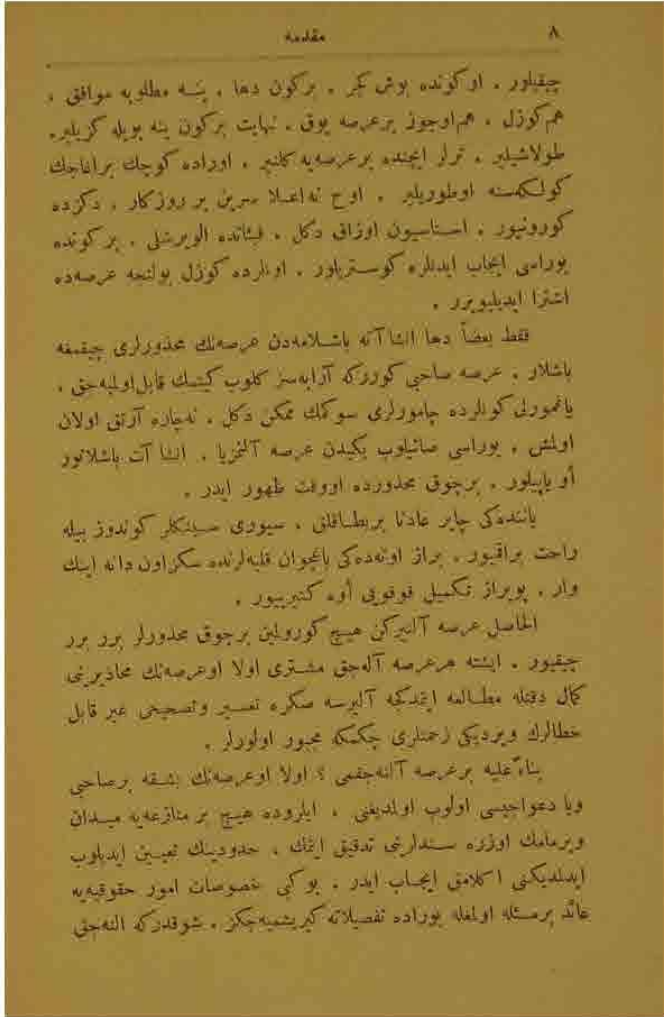 ٨ مقدمه
چيقيلور . او كونده بوش كچر . بركون دها . ينه مطلوبه موافق .
هم كوزل . هم اوجوز برعرصه يوق . نهايت بركون ينه بويله كزيلير .
طولاشيلير . ترلر ايچنده برعرصه‌يه كلنير . اوراده كوچك براغاجك
كولكه‌سنه اوطوريلير . اوح نه اعلا سرين بر روزكار . دكزده
كورونيور . استاسيون اوزاق دكل . فيئاتده الويريشلى . بر كونده
بوراسى ايجاب ايدنلره كوستريلور . اونلرده كوزل بولنجه عرصه‌ده
اشترا ايديليويرر .
فقط بعضاً دها انشاآته باشلامه‌دن عرصه‌نك محذورلرى چيقمغه
باشلار . عرصه صاحبى كوررکه آرابه‌سز كلوب كيتمك قابل اولميه‌جق .
ياغمورلى كونلرده چامورلرى سوكمك ممكن دكل . نه‌چاره آرتق اولان
اولمش . بوراسى صاتيلوب يكيدن عرصه آلنمزيا . انشاآت باشلانور
أو ياپيلور . برچوق محذورده اووقت ظهور ايدر .
ياننده‌كى چاير عادتا بربطاقلق . سيورى سينكلر كوندوز بيله
راحت براقميور . براز اوته‌ده‌كى باغچوان قلبه‌لرنده سكز اون دانه اينك
وار . پويراز تكميل قوقويى أوه كتيرييور .
الحاصل عرصه آلنيركن هيچ كورولمين برچوق محذورلر برر برر
چيقيور . ايشته هرعرصه آله‌جق مشترى اولا اوعرصه‌نك محاذيرينى
كمال دقتله مطالعه ايتمدكجه آليرسه صكره تعمير وتصحيحى غير قابل
خطالرك ويرديكى زحمتلرى چكمكه مجبور اولورلر .
بناءً عليه برعرصه آلنه‌جقمى ؟ اولا اوعرصه‌نك بشقه برصاحبى
ويا دعواجيسى اولوب اولمديغنى . ايلروده هيچ بر منازعه‌يه ميدان
ويرمامك اوزره سندلرينى تدقيق ايتمك . حدودينك تعيين ايديلوب
ايدلمديكنى اكلامق ايجاب ايدر . بو كبى خصوصات امور حقوقيه‌يه
عائد برمسئله اولمغله بوراده تفصيلاته كيريشميه‌جكز . شوقدركه النه‌جق